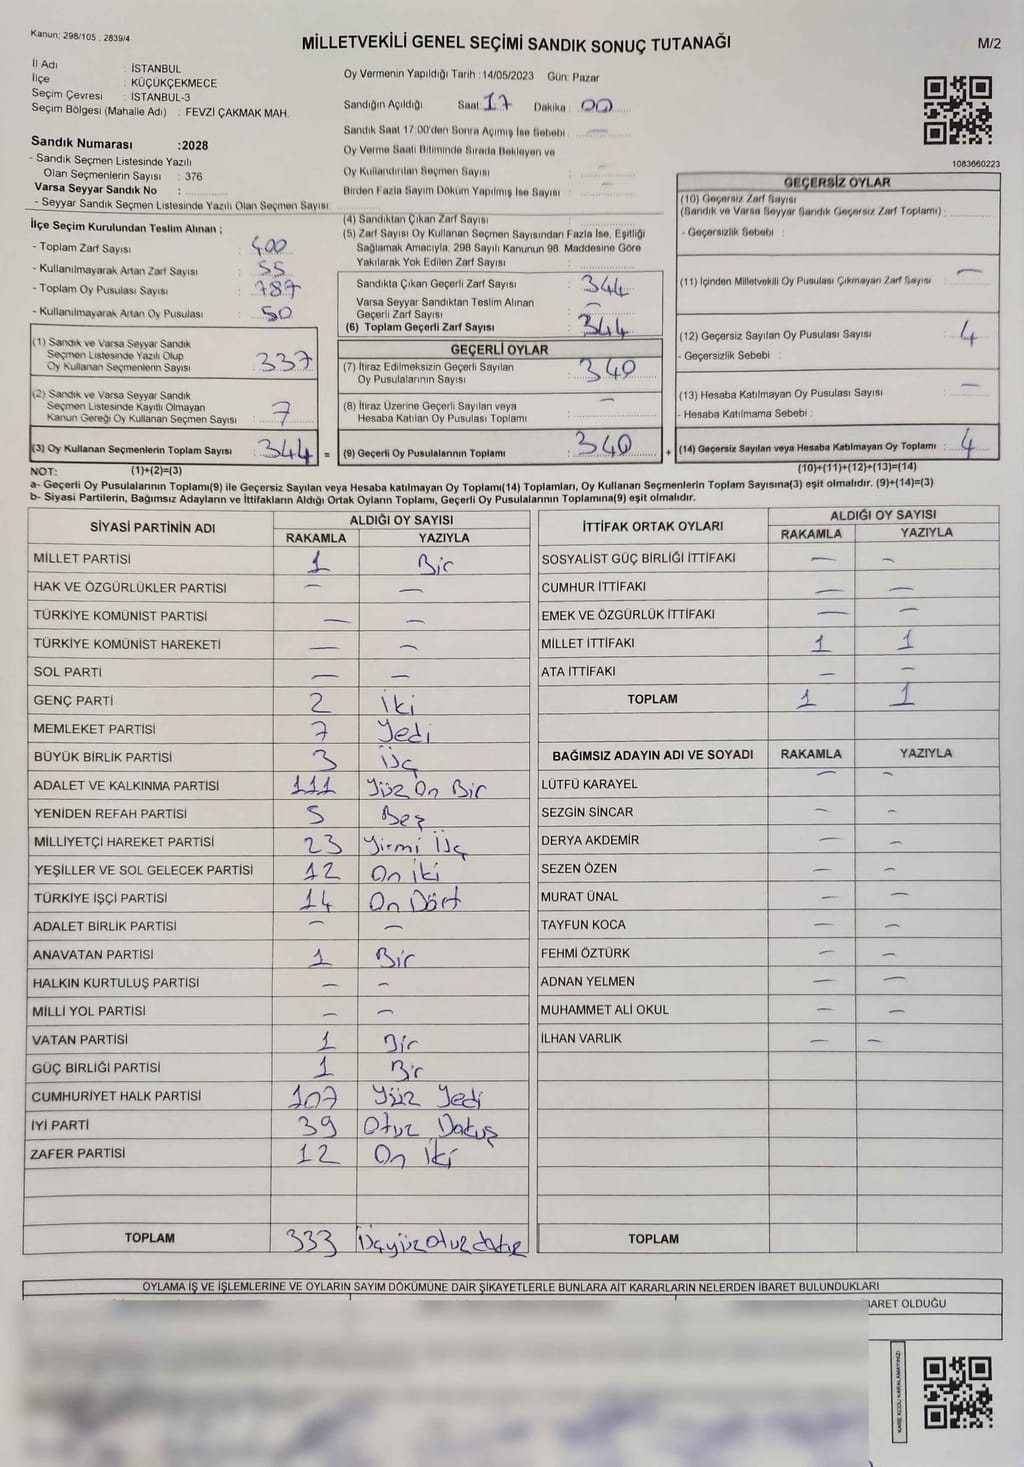 Kanun: 298/105 , 2839/4
MİLLETVEKİLİ GENEL SEÇİMİ SANDIK SONUÇ TUTANAĞI
M/2
İl Adı : İSTANBUL
İlçe : KÜÇÜKÇEKMECE
Seçim Çevresi : İSTANBUL-3
Seçim Bölgesi (Mahalle Adı) : FEVZİ ÇAKMAK MAH.
Oy Vermenin Yapıldığı Tarih :14/05/2023 Gün: Pazar
Sandığın Açıldığı Saat 17 Dakika 00
Sandık Saat 17:00'den Sonra Açılmış İse Sebebi : —
Oy Verme Saati Bitiminde Sırada Bekleyen ve
Oy Kullandırılan Seçmen Sayısı : —
Birden Fazla Sayım Döküm Yapılmış İse Sayısı : —
1083660223
Sandık Numarası :2028
- Sandık Seçmen Listesinde Yazılı
Olan Seçmenlerin Sayısı : 376
Varsa Seyyar Sandık No :
- Seyyar Sandık Seçmen Listesinde Yazılı Olan Seçmen Sayısı :
İlçe Seçim Kurulundan Teslim Alınan ;
- Toplam Zarf Sayısı : 400
- Kullanılmayarak Artan Zarf Sayısı : 55
- Toplam Oy Pusulası Sayısı : 787
- Kullanılmayarak Artan Oy Pusulası : 50
(1) Sandık ve Varsa Seyyar Sandık
Seçmen Listesinde Yazılı Olup
Oy Kullanan Seçmenlerin Sayısı : 337
(2) Sandık ve Varsa Seyyar Sandık
Seçmen Listesinde Kayıtlı Olmayan
Kanun Gereği Oy Kullanan Seçmen Sayısı : 7
(3) Oy Kullanan Seçmenlerin Toplam Sayısı : 344 =
(4) Sandıktan Çıkan Zarf Sayısı :
(5) Zarf Sayısı Oy Kullanan Seçmen Sayısından Fazla İse, Eşitliği
Sağlamak Amacıyla, 298 Sayılı Kanunun 98. Maddesine Göre
Yakılarak Yok Edilen Zarf Sayısı :
Sandıkta Çıkan Geçerli Zarf Sayısı : 344
Varsa Seyyar Sandıktan Teslim Alınan
Geçerli Zarf Sayısı : —
(6) Toplam Geçerli Zarf Sayısı : 344
GEÇERLİ OYLAR
(7) İtiraz Edilmeksizin Geçerli Sayılan
Oy Pusulalarının Sayısı : 340
(8) İtiraz Üzerine Geçerli Sayılan veya
Hesaba Katılan Oy Pusulası Toplamı : —
(9) Geçerli Oy Pusulalarının Toplamı : 340 +
GEÇERSİZ OYLAR
(10) Geçersiz Zarf Sayısı
(Sandık ve Varsa Seyyar Sandık Geçersiz Zarf Toplamı) :
- Geçersizlik Sebebi :
(11) İçinden Milletvekili Oy Pusulası Çıkmayan Zarf Sayısı : —
(12) Geçersiz Sayılan Oy Pusulası Sayısı : 4
- Geçersizlik Sebebi :
(13) Hesaba Katılmayan Oy Pusulası Sayısı : —
- Hesaba Katılmama Sebebi :
(14) Geçersiz Sayılan veya Hesaba Katılmayan Oy Toplamı : 4
NOT: (1)+(2)=(3)
(10)+(11)+(12)+(13)=(14)
a- Geçerli Oy Pusulalarının Toplamı(9) ile Geçersiz Sayılan veya Hesaba katılmayan Oy Toplamı(14) Toplamları, Oy Kullanan Seçmenlerin Toplam Sayısına(3) eşit olmalıdır. (9)+(14)=(3)
b- Siyasi Partilerin, Bağımsız Adayların ve İttifakların Aldığı Ortak Oyların Toplamı, Geçerli Oy Pusulalarının Toplamına(9) eşit olmalıdır.
SİYASİ PARTİNİN ADI ALDIĞI OY SAYISI
RAKAMLA YAZIYLA
MİLLET PARTİSİ 1 Bir
HAK VE ÖZGÜRLÜKLER PARTİSİ — —
TÜRKİYE KOMÜNİST PARTİSİ — —
TÜRKİYE KOMÜNİST HAREKETİ — —
SOL PARTİ — —
GENÇ PARTİ 2 İki
MEMLEKET PARTİSİ 7 Yedi
BÜYÜK BİRLİK PARTİSİ 3 Üç
ADALET VE KALKINMA PARTİSİ 111 Yüz On Bir
YENİDEN REFAH PARTİSİ 5 Beş
MİLLİYETÇİ HAREKET PARTİSİ 23 Yirmi Üç
YEŞİLLER VE SOL GELECEK PARTİSİ 12 On iki
TÜRKİYE İŞÇİ PARTİSİ 14 On Dört
ADALET BİRLİK PARTİSİ — —
ANAVATAN PARTİSİ 1 Bir
HALKIN KURTULUŞ PARTİSİ — —
MİLLİ YOL PARTİSİ — —
VATAN PARTİSİ 1 Bir
GÜÇ BİRLİĞİ PARTİSİ 1 Bir
CUMHURİYET HALK PARTİSİ 107 Yüz Yedi
İYİ PARTİ 39 Otuz Dokuz
ZAFER PARTİSİ 12 On iki
TOPLAM 333
İTTİFAK ORTAK OYLARI ALDIĞI OY SAYISI
RAKAMLA YAZIYLA
SOSYALİST GÜÇ BİRLİĞİ İTTİFAKI — —
CUMHUR İTTİFAKI — —
EMEK VE ÖZGÜRLÜK İTTİFAKI — —
MİLLET İTTİFAKI 1 1
ATA İTTİFAKI — —
TOPLAM 1 1
BAĞIMSIZ ADAYIN ADI VE SOYADI RAKAMLA YAZIYLA
LÜTFÜ KARAYEL — —
SEZGİN SİNCAR — —
DERYA AKDEMİR — —
SEZEN ÖZEN — —
MURAT ÜNAL — —
TAYFUN KOCA — —
FEHMİ ÖZTÜRK — —
ADNAN YELMEN — —
MUHAMMET ALİ OKUL — —
İLHAN VARLIK — —
TOPLAM
OYLAMA İŞ VE İŞLEMLERİNE VE OYLARIN SAYIM DÖKÜMÜNE DAİR ŞİKAYETLERLE BUNLARA AİT KARARLARIN NELERDEN İBARET BULUNDUKLARI
BARET OLDUĞU
KARE KODU KARALAMAYINIZ!